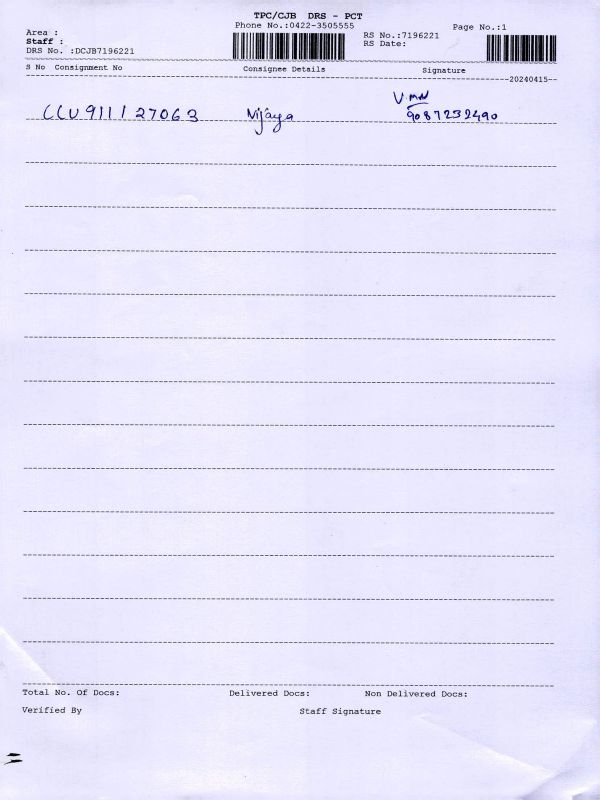 TPC/CJB DRS - PCT
Phone No.:0422-3505555
Page No.:1
Area :
Staff :
RS No.:7196221
RS Date:
DRS No. :DCJB7196221
S No Consignment No Consignee Details Signature
20240415
CCU 911127063 Vijaya
9087232490
Total No. Of Docs: Delivered Docs: Non Delivered Docs:
Verified By Staff Signature